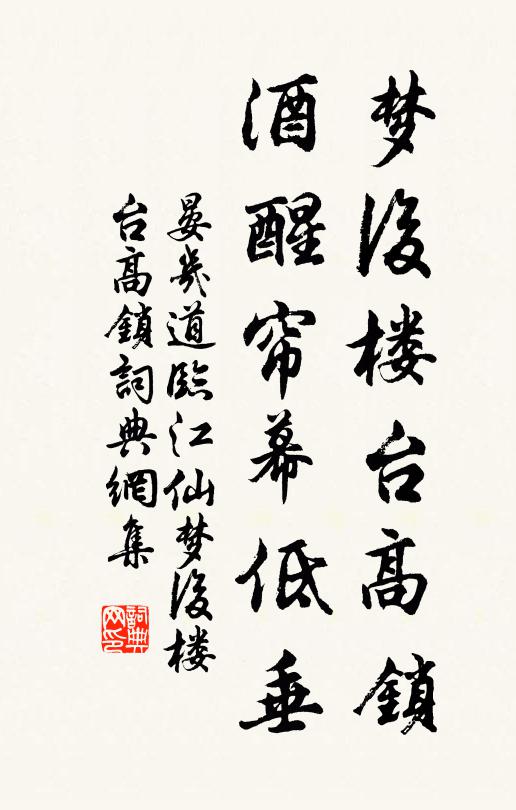 梦後楼台高鎖
酒醒帘幕低垂
晏幾道臨江仙梦後楼
台高鎖詞典網集
詞典网印